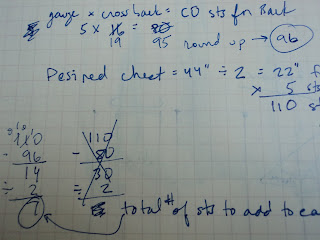 gauge x crossback = CO sts for Back
5 x 16 = 80
19 95 round up → 96
Desired chest = 44" ÷ 2 = 22" f
x 5 sts
110 st
110 110
- 96 - 80
14 30
÷ 2 ÷ 2
7
total # of sts to add to ea